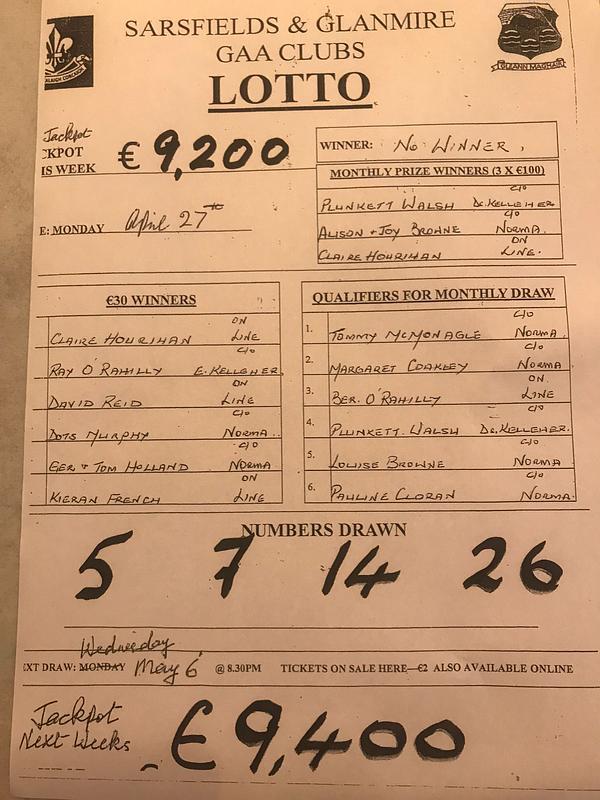 SARSFIELDS & GLANMIRE
GAA CLUBS
LOTTO
GLEANN MAGHAIR
Jackpot
CKPOT
IS WEEK
€9,200
WINNER: No WINNER.
MONTHLY PRIZE WINNERS (3 X €100)
PLUNKETT WALSH C/O Dr. KELLEHER
ALISON + JOY BROWNE C/O NORMA.
CLAIRE HOURIHAN ON LINE.
E: MONDAY April 27th
€30 WINNERS
CLAIRE HOURIHAN ON LINE
RAY O'RAHILLY C/O E. KELLEHER.
DAVID REID ON LINE
DOTS MURPHY C/O NORMA.
GER + TOM HOLLAND C/O NORMA
KIERAN FRENCH ON LINE
QUALIFIERS FOR MONTHLY DRAW
1. TOMMY McMONAGLE C/O NORMA.
2. MARGARET COAKLEY C/O NORMA
3. BER. O'RAHILLY ON. LINE
4. PLUNKETT. WALSH C/O Dr. KELLEHER.
5. LOUISE BROWNE C/O NORMA
6. PAULINE CLORAN C/O NORMA.
NUMBERS DRAWN
5 7 14 26
Wednesday
EXT DRAW: MONDAY May 6 @ 8.30PM TICKETS ON SALE HERE—€2 ALSO AVAILABLE ONLINE
Jackpot
Next Weeks
€9,400